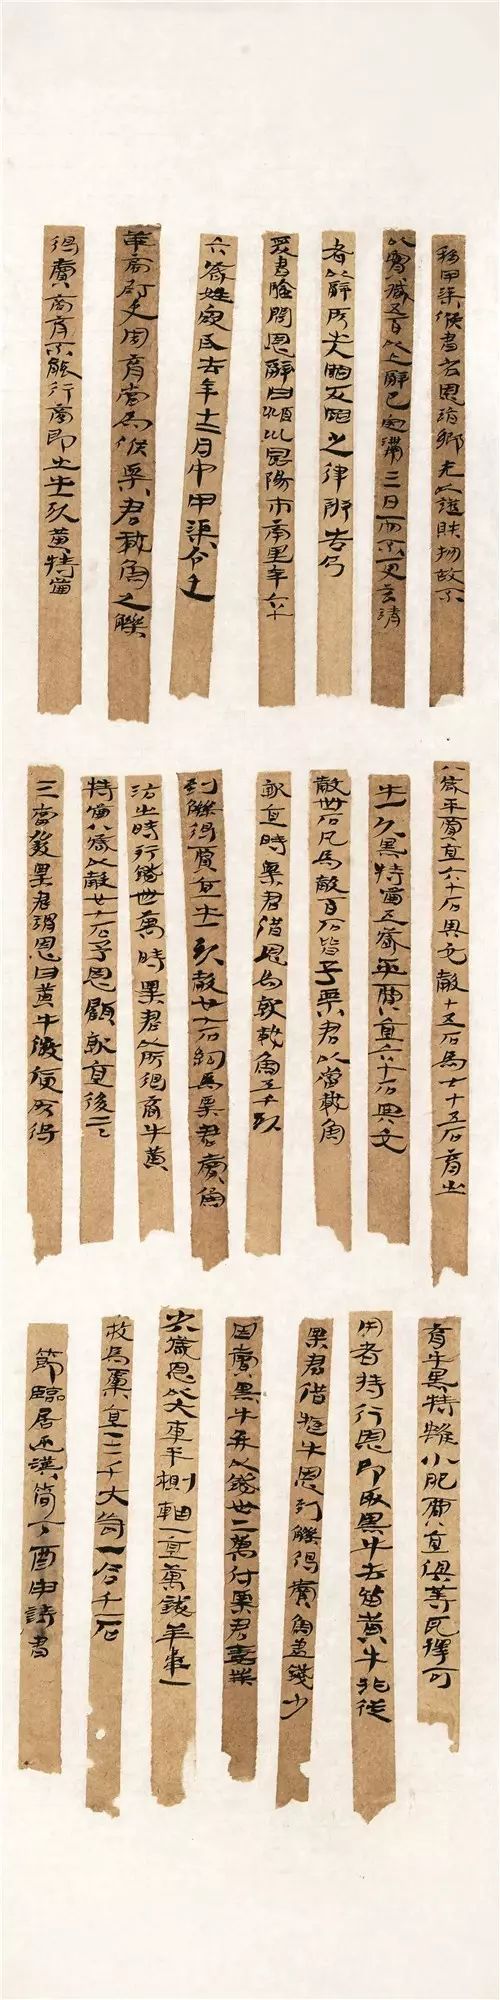 移甲渠候書召恩詣鄉先以證財物故不
以實臧五百以上辭已定滿三日而不更言請
者以辭所出入罪反罪之律辨告乃
爰書驗問恩辭曰潁川昆陽市南里年六十
六歲姓寇氏去年十二月中甲渠令史
華商尉史周育當為候粟君載魚之觻
得賣商育不能行商即出牛一頭黃特齒
八歲平賈直六十石與它穀十五石為七十五石育出
牛一頭黑特齒五歲平賈直六十石與它
穀卌石凡為穀百石皆予粟君以當載魚
就直時粟君借恩為就載魚五千頭
到觻得賈直牛一頭穀廿七石約為粟君賣魚
沽出時行錢卌萬時粟君以所得商牛黃
特齒八歲以穀廿七石予恩顧就直後二
三當發粟君謂恩曰黃牛微庾所得
育牛黑特雖小肥賈直俱等耳擇可
用者持行恩即取黑牛去留黃牛非從
粟君借犅牛恩到觻得賣魚盡錢少
因賣黑牛并以錢卅二萬付粟君妻業
少八歲恩以大車半側軸一直萬錢羊韋一
枚為橐直三千大笥一合千一石
節臨居延漢簡丁酉申詩書